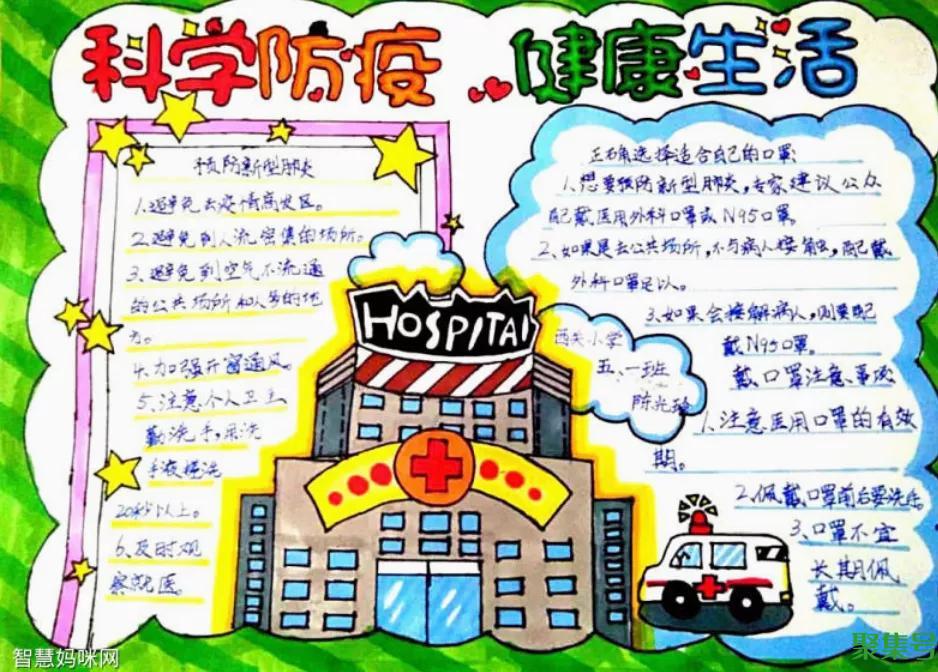 科学防疫 健康生活
预防新型肺炎
1、避免去疫情高发区。
2、避免到人流密集的场所。
3、避免到空气不流通
的公共场所和人多的地
方。
4、加强开窗通风。
5、注意个人卫生
勤洗手,用洗
手液搓洗
20秒以上。
6、及时观
察就医。
HOSPITAL
西关小学
五、一班
陈光
正确选择适合自己的口罩:
1、想要预防新型肺炎,专家建议公众
配戴医用外科口罩或N95口罩。
2、如果是去公共场所,不与病人接触,配戴
外科口罩足以。
3、如果会接解病人,则要配
戴N95口罩。
戴口罩注意事项
1、注意医用口罩的有效
期。
2、佩戴口罩前后要洗手
3、口罩不宜
长期佩
戴。
智慧妈咪网
聚集号